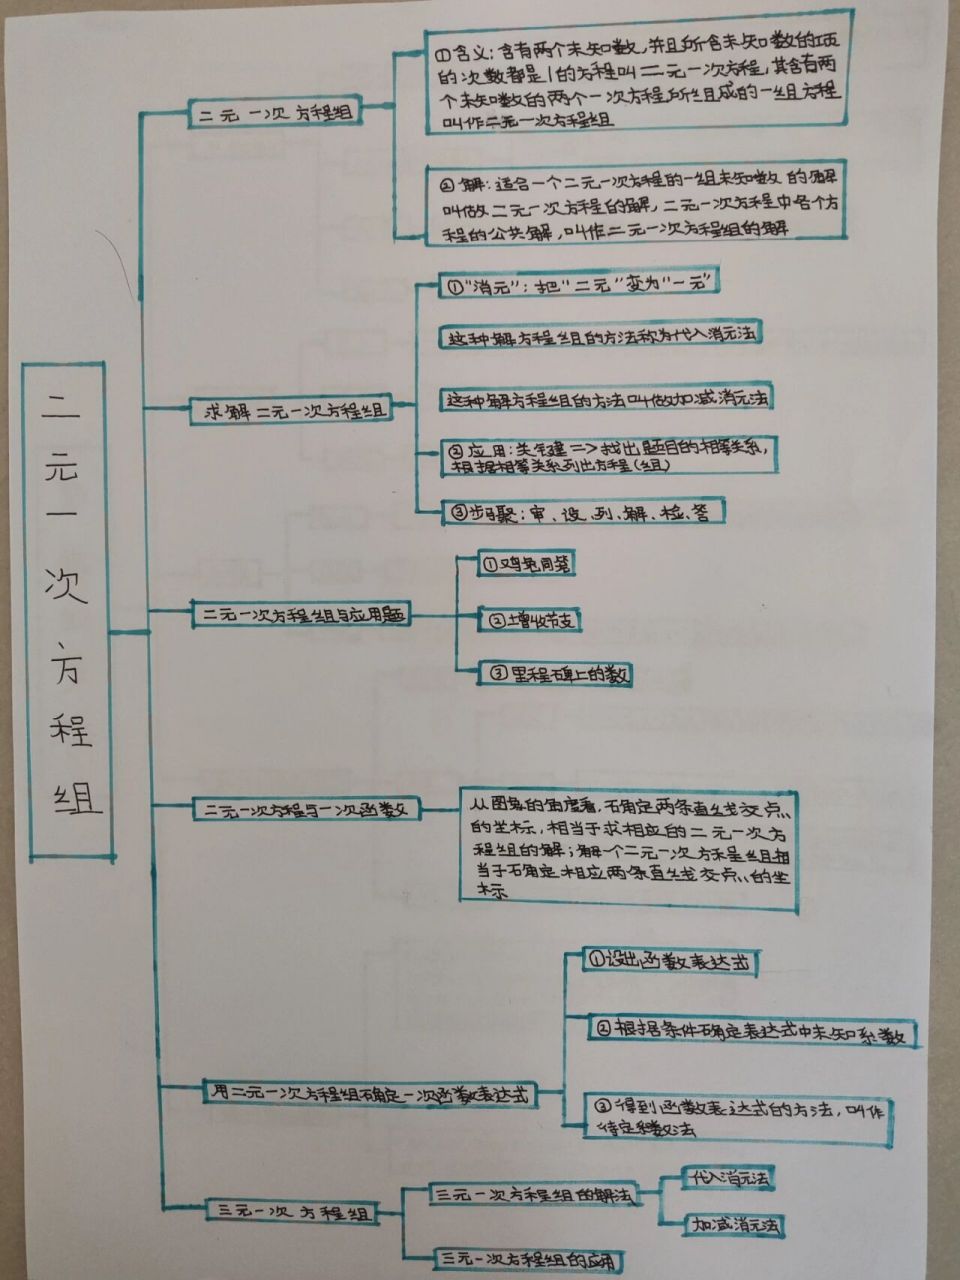 二元一次方程组
二元一次方程组
①含义:含有两个未知数,并且所含未知数的项
的次数都是1的方程叫二元一次方程,其含有两
个未知数的两个一次方程所组成的一组方程
叫作二元一次方程组
②解:适合一个二元一次方程的一组未知数的解
叫做二元一次方程的解,二元一次方程中各个方
程的公共解,叫作二元一次方程组的解
求解二元一次方程组
①“消元”:把“二元”变为“一元”
这种解方程组的方法称为代入消元法
这种解方程组的方法叫做加减消元法
②应用:关键=>找出题目的相等关系,
根据相等关系列出方程(组)
③步骤:审、设、列、解、检、答
二元一次方程组与应用题
①鸡兔同笼
②增收节支
③里程碑上的数
二元一次方程与一次函数
从图象的角度看,确定两条直线交点
的坐标,相当于求相应的二元一次方
程组的解;解一个二元一次方程组相
当于确定相应两条直线交点的坐
标
用二元一次方程组确定一次函数表达式
①设出函数表达式
②根据条件确定表达式中未知系数
③得到函数表达式的方法,叫作
待定系数法
三元一次方程组
三元一次方程组的解法
代入消元法
加减消元法
三元一次方程组的应用